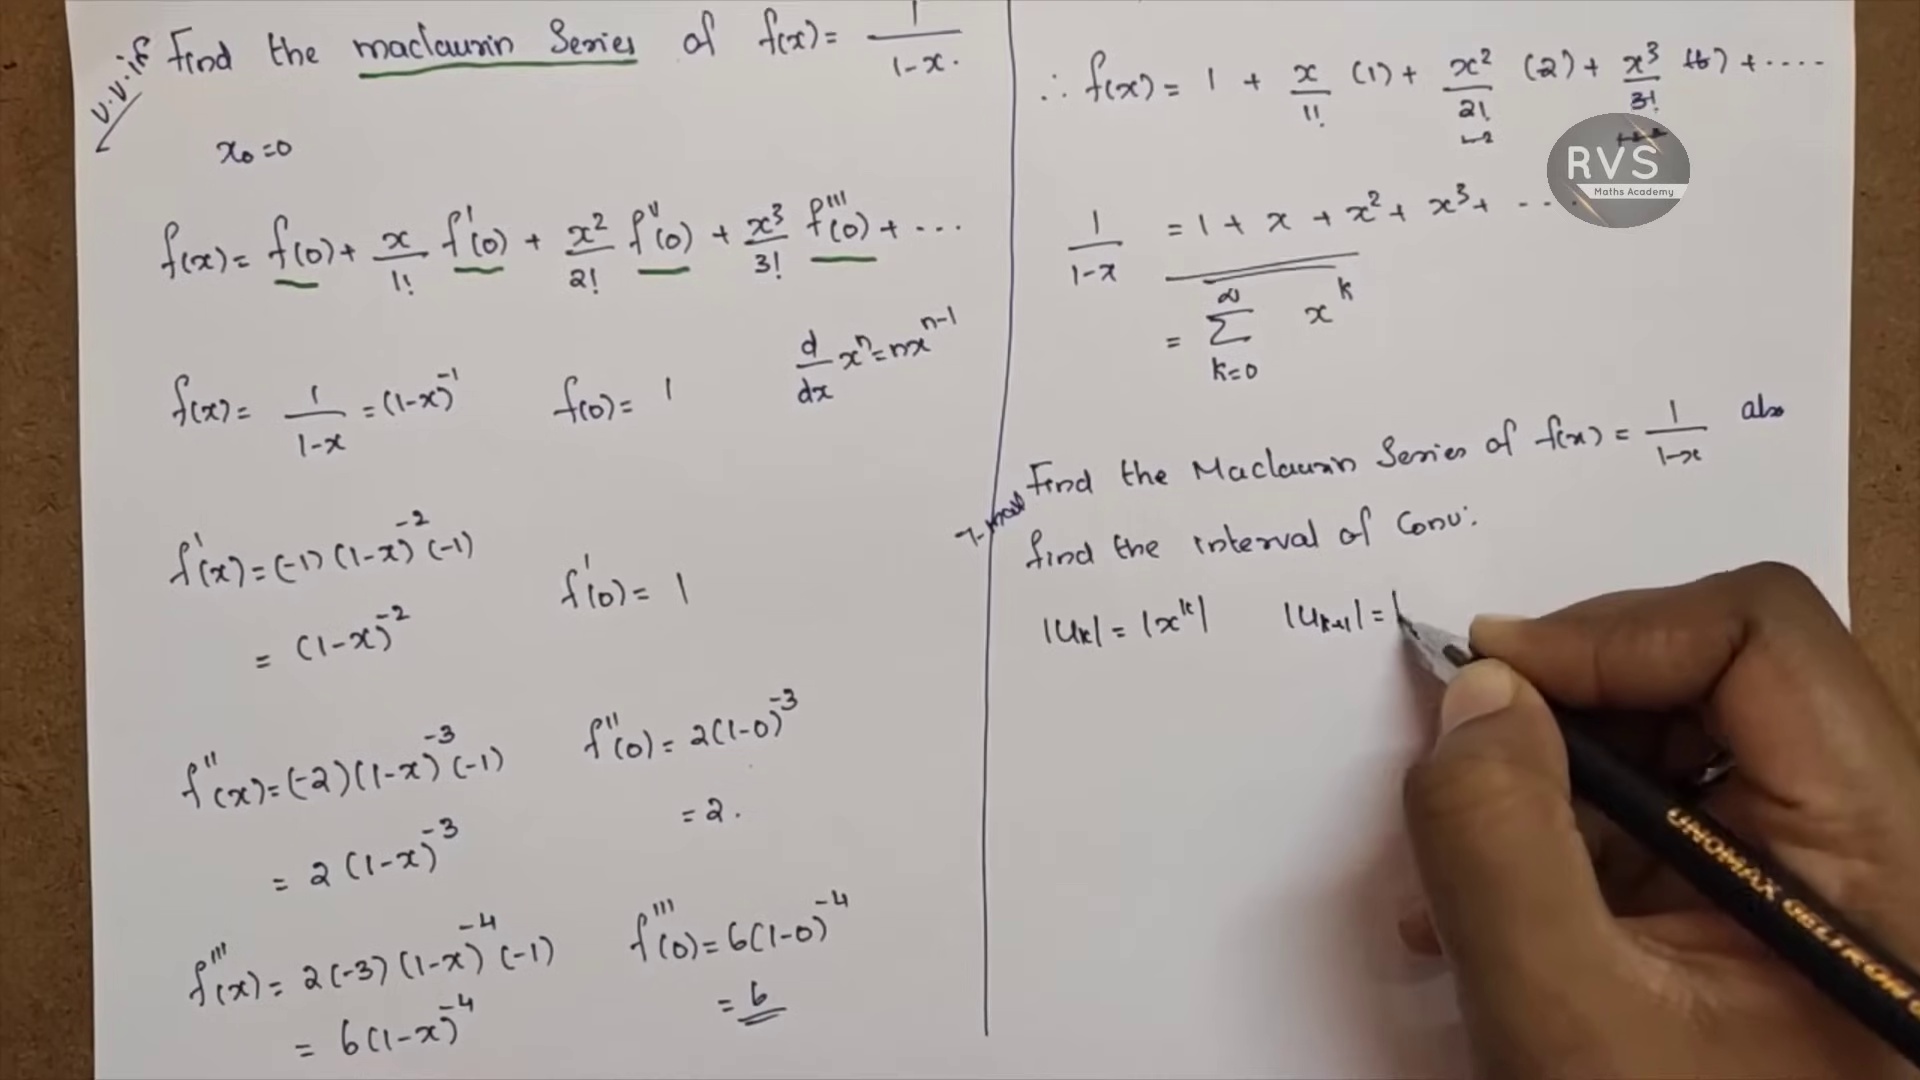 V.V.if
Find the maclaurin Series of f(x) = 1/1-x.
x₀=0
f(x) = f(0) + x/1! f'(0) + x²/2! f''(0) + x³/3! f'''(0) + ...
d/dx xⁿ = nxⁿ⁻¹
f(x) = 1/1-x = (1-x)⁻¹ f(0) = 1
f'(x) = (-1)(1-x)⁻²(-1) f'(0) = 1
= (1-x)⁻²
f''(x) = (-2)(1-x)⁻³(-1) f''(0) = 2(1-0)⁻³
= 2(1-x)⁻³ = 2.
f'''(x) = 2(-3)(1-x)⁻⁴(-1) f'''(0) = 6(1-0)⁻⁴
= 6(1-x)⁻⁴ = 6
∴ f(x) = 1 + x/1! (1) + x²/2! (2) + x³/3! (6) + ....
RVS
Maths Academy
1/1-x = 1 + x + x² + x³ + ....
= ∞ Σ k=0 xᵏ
Find the Maclaurin Series of f(x) = 1/1-x also
find the interval of Conv:
|Uₖ| = |xᵏ| |Uₖ₊₁| = |
UNOMAX GELTRON